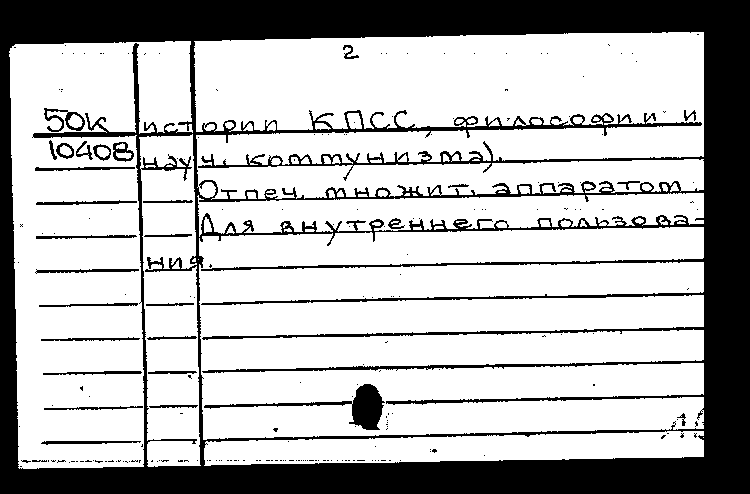 2
50к истории КПСС, философии и
10408 науч. коммунизма).
Отпеч. множит. аппаратом.
Для внутреннего пользова-
ния.